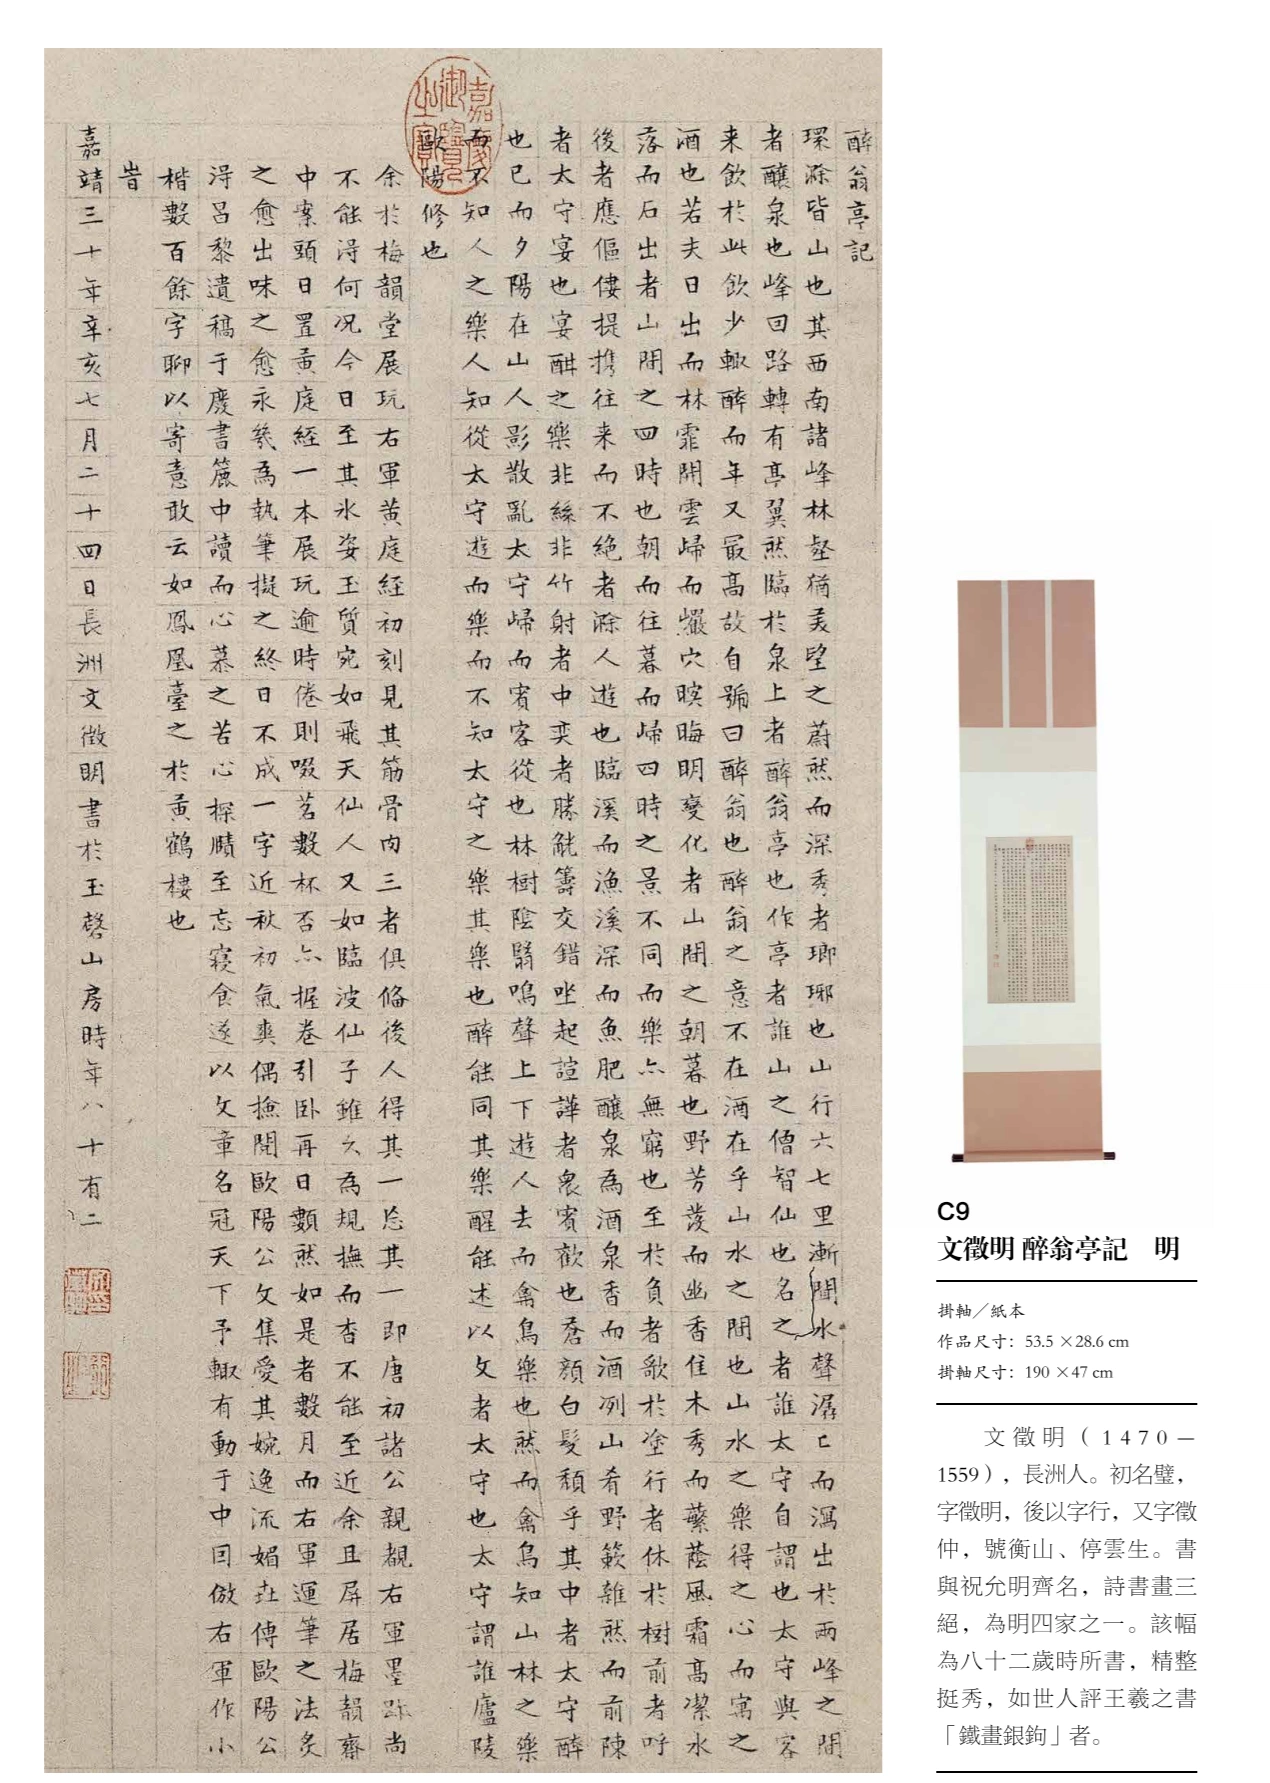 醉翁亭記
環滁皆山也其西南諸峰林壑猶美望之蔚然而深秀者瑯琊也山行六七里漸聞水聲潺〻而瀉出於兩峰之間
者釀泉也峰回路轉有亭翼然臨於泉上者醉翁亭也作亭者誰山之僧智仙也名之者誰太守自謂也太守與客
来飲於此飲少輒醉而年又最高故自號曰醉翁也醉翁之意不在酒在乎山水之間也山水之樂得之心而寓之
酒也若夫日出而林霏開雲歸而巖穴暝晦明變化者山間之朝暮也野芳發而幽香佳木秀而蘩蔭風霜高潔水
落而石出者山間之四時也朝而往暮而歸四時之景不同而樂亦無窮也至於負者歌於塗行者休於樹前者呼
後者應傴僂提携往来而不絕者滁人遊也臨溪而漁溪深而魚肥釀泉為酒泉香而酒冽山肴野蔌雜然而前陳
者太守宴也宴酣之樂非絲非竹射者中奕者勝觥籌交錯坐起諠譁者衆賓歡也蒼顏白髮頹乎其中者太守醉
也已而夕陽在山人影散亂太守歸而賓客從也林樹陰翳鳴聲上下遊人去而禽鳥樂也然而禽鳥知山林之樂
而不知人之樂人知從太守遊而樂而不知太守之樂其樂也醉能同其樂醒能述以文者太守也太守謂誰廬陵
歐陽修也
余於梅韻堂展玩右軍黃庭經初刻見其筋骨肉三者俱俻後人得其一忘其一即唐初諸公親覩右軍墨跡尚
不能淂何况今日至其氷姿玉質宛如飛天仙人又如臨波仙子雖久為規撫而杳不能至近余且屏居梅韻齋
中案頭日置黃庭經一本展玩逾時倦則啜茗數杯否亦握卷引卧再日數然如是者數月而右軍運筆之法炙
之愈出味之愈永幾為執筆擬之終日不成一字近秋初氣爽偶撿閱歐陽公文集愛其婉逸流媚並傳歐陽公
淂昌黎遺稿于慶書簏中讀而心慕之苦心探賾至忘寢食遂以文章名冠天下予輙有動于中因倣右軍作小
楷數百餘字聊以寄意敢云如鳳凰臺之於黃鶴樓也
旹
嘉靖三十年辛亥七月二十四日長洲文徵明書於玉磬山房時年八十有二
嘉慶御覽之寶
C9
文徵明 醉翁亭記　明
掛軸／紙本
作品尺寸：53.5 ×28.6 cm
掛軸尺寸：190 ×47 cm
文徵明（1470—
1559），長洲人。初名璧，
字徵明，後以字行，又字徵
仲，號衡山、停雲生。書
與祝允明齊名，詩書畫三
絕，為明四家之一。該幅
為八十二歲時所書，精整
挺秀，如世人評王羲之書
「鐵畫銀鉤」者。